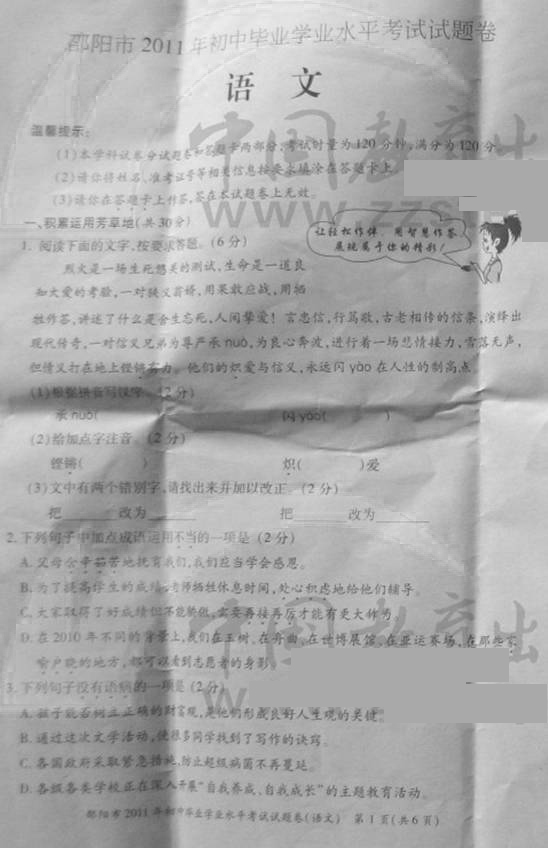 邵阳市2011年初中毕业学业水平考试试题卷
语 文
温馨提示:
(1)本学科试卷分试题卷和答题卡两部分,考试时量为120分钟,满分为120分
(2)请你将姓名、准考证号等相关信息按要求填涂在答题卡上
(3)请你在答题卡上作答,答在本试题卷上无效。
一、积累运用芳草地(共30分)
让轻松作伴 用智慧作答
展现属于你的精彩!
1. 阅读下面的文字,按要求答题。(6分)
烈火是一场生死悠关的测试,生命是一道良
知大爱的考验,一对侠义翁婿,用果敢应战,用牺
牲作答,讲述了什么是舍生忘死,人间挚爱!言忠信,行笃敬,古老相传的信条,演绎出
现代传奇,一对信义兄弟为尊严承nuò,为良心奔波,进行着一场悲情接力,雪落无声,
但情义打在地上铿锵有力。他们的炽爱与信义,永远闪yào在人性的制高点
(1)根据拼音写汉字。(2分)
承nuò( ) 闪yào( )
(2)给加点字注音。(2分)
铿锵( ) 炽( )爱
(3)文中有两个错别字,请找出来并加以改正。(2分)
把______改为______ 把______改为______
2. 下列句子中加点成语运用不当的一项是(2分)
A. 父母含辛茹苦地抚育我们,我们应当学会感恩。
B. 为了提高学生的成绩,老师牺牲休息时间,处心积虑地给他们辅导。
C. 大家取得了好成绩但不能骄傲,需要再接再厉才能有更大作为
D. 在2010年不同的背景上,我们在玉树、在舟曲、在世博展馆、在亚运赛场,在那些家
喻户晓的地方,都可以看到志愿者的身影
3. 下列句子没有语病的一项是(2分)
A. 孩子能否树立正确的财富观,是他们形成良好人生观的关键。
B. 通过这次文学活动,使很多同学找到了写作的诀窍。
C. 各国政府采取紧急措施,防止超级病菌不再蔓延。
D. 各级各类学校正在深入开展"自我养成、自我成长"的主题教育活动。
邵阳市2011年初中毕业学业水平考试试题卷(语文) 第1页(共6页)
中国教育出
www.zzs
中国教育出
w